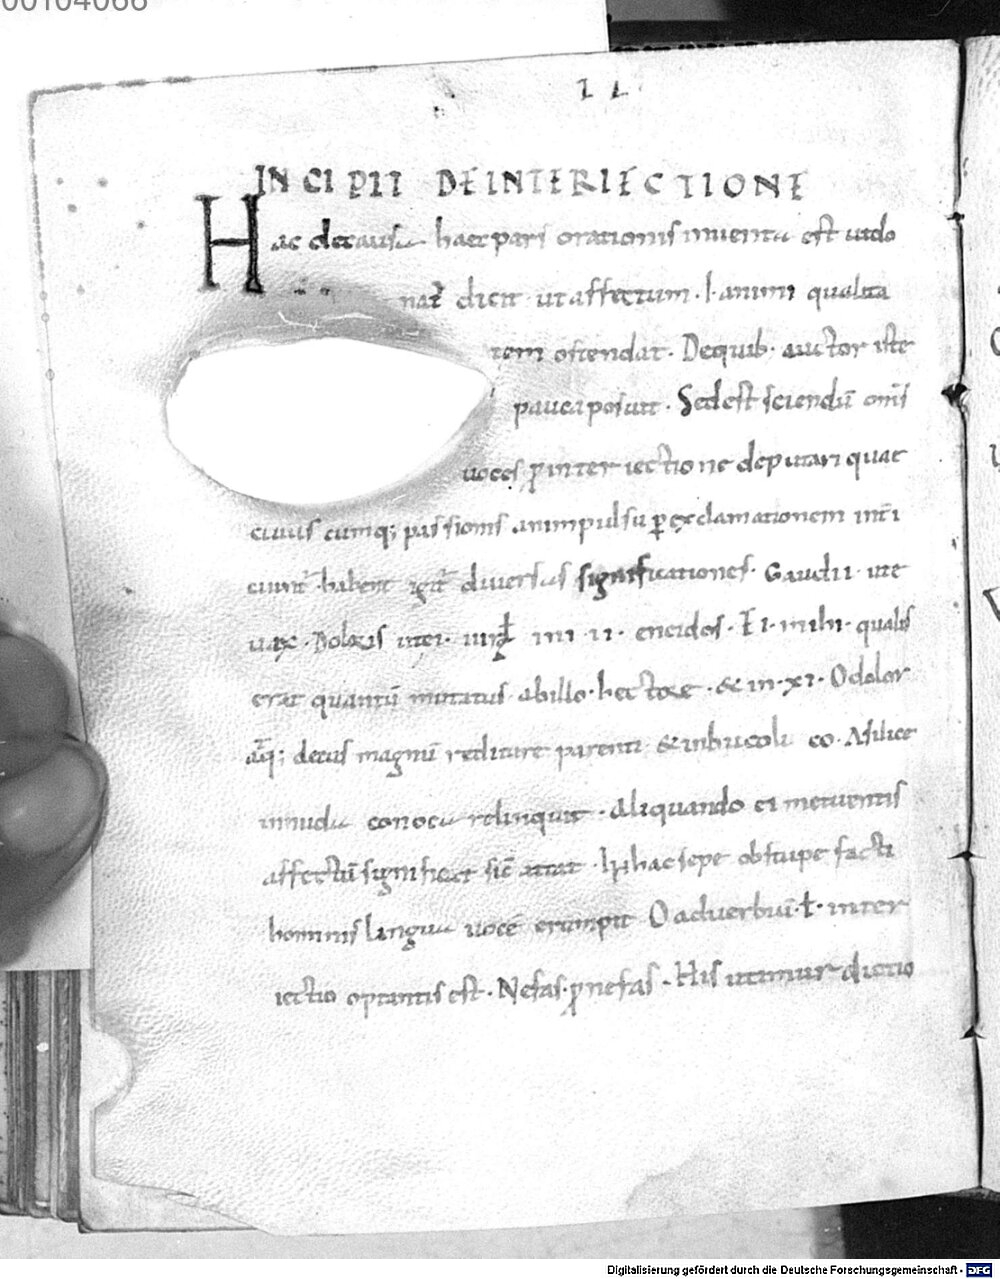 00104066
INCIPIT DEINTERIECTIONE
Hac decausa haec pars orationis inuenta est ut do
nat̄ dicit ut affectum · l animi qualita
tem ostendat · Dequib · auctor iste
pauca posuit · Sed est sciendū om̄s
uoces p inter iectione deputari quae
cuius cumq; passionis anim pulsu p exclamationem int̄i
ciunt̄ · habent diuersas significationes · Gaudii ute
uax · Doloris utei · IIII II · eneidos · Ei · mihi · qualis
erat quantū mutatus abillo · hectore · & in · XI · O dolor
atq; decus magnū rediture parenti · & inbucoli co · A silice
innuda conoca relinquit · Aliquando ei metuentis
affectū significat sic̄ attat · hac sepe obstupe facti
hominis lingua uocē erumpit O aduerbiū · ł · inter
iectio optantis est · Nefas · p nefas · His utimur dictio
Digitalisierung gefördert durch die Deutsche Forschungsgemeinschaft - DFG